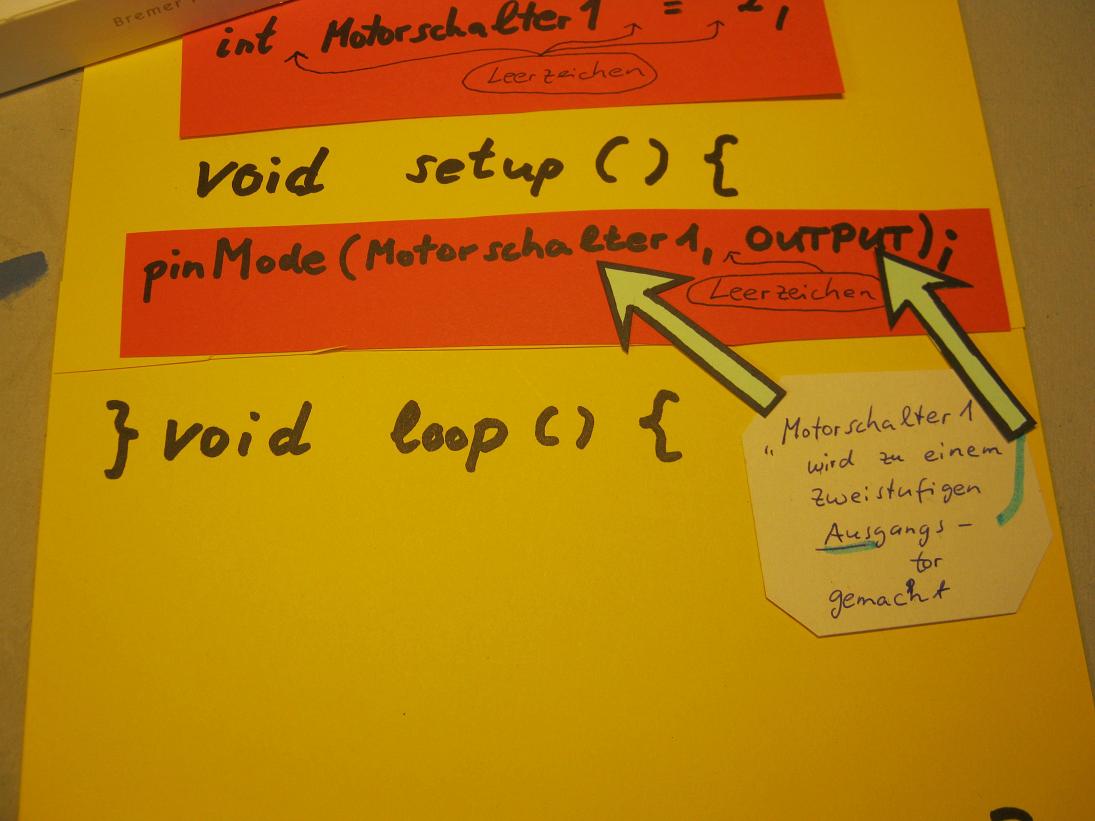 Bremer
int Motorschalter1 = ;
Leerzeichen
void setup () {
pinMode (Motorschalter1, OUTPUT);
Leerzeichen
} void loop () {
"Motorschalter 1
wird zu einem
zweistufigen
Ausgangs-
tor
gemacht